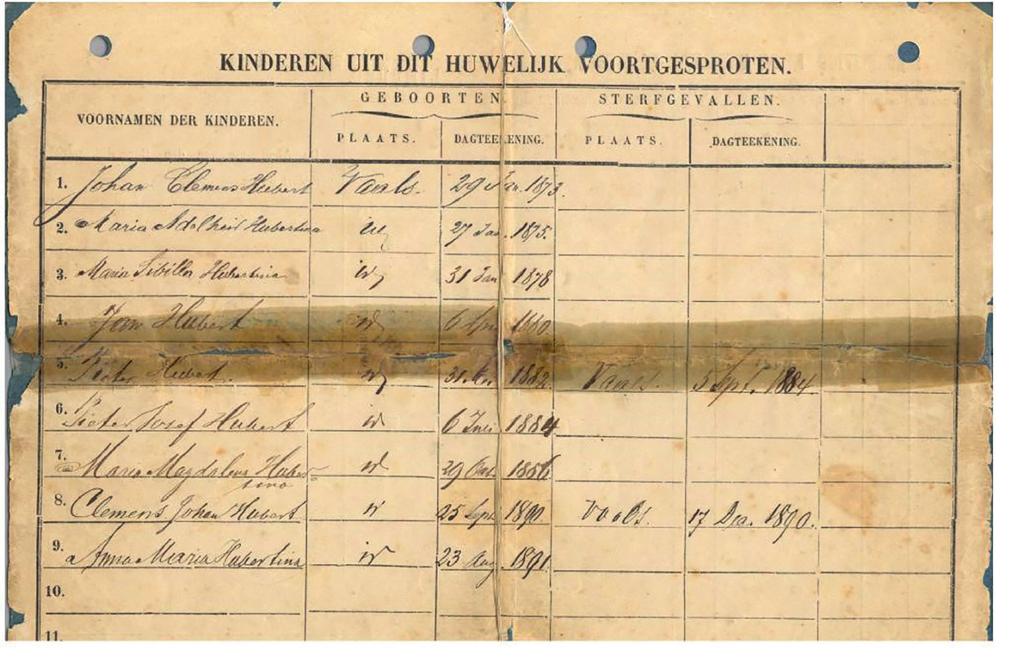 KINDEREN UIT DIT HUWELIJK VOORTGESPROTEN.
VOORNAMEN DER KINDEREN. GEBOORTEN. STERFGEVALLEN.
PLAATS. DAGTEEKENING. PLAATS. DAGTEEKENING.
1. Johan Clemens Hubert Vaals. 29 Jan. 1873.
2. Maria Adelheid Hubertina 27 Jan. 1875.
3. Maria Sibilla Hubertina 31 Jan 1878
4. Jan Hubert 6 1880.
5. Pieter Hubert. 31 1882. Vaals. 5 Spt. 1884.
6. Pieter Jozef Hubert 6 1884
7. Maria Magdalena Huber-
tina 29 1886.
8. Clemens Johan Hubert 25 Sept. 1890. Vaals. 17 Dec. 1890.
9. Anna Maria Hubertina 23 Aug. 1891.
10.
11.